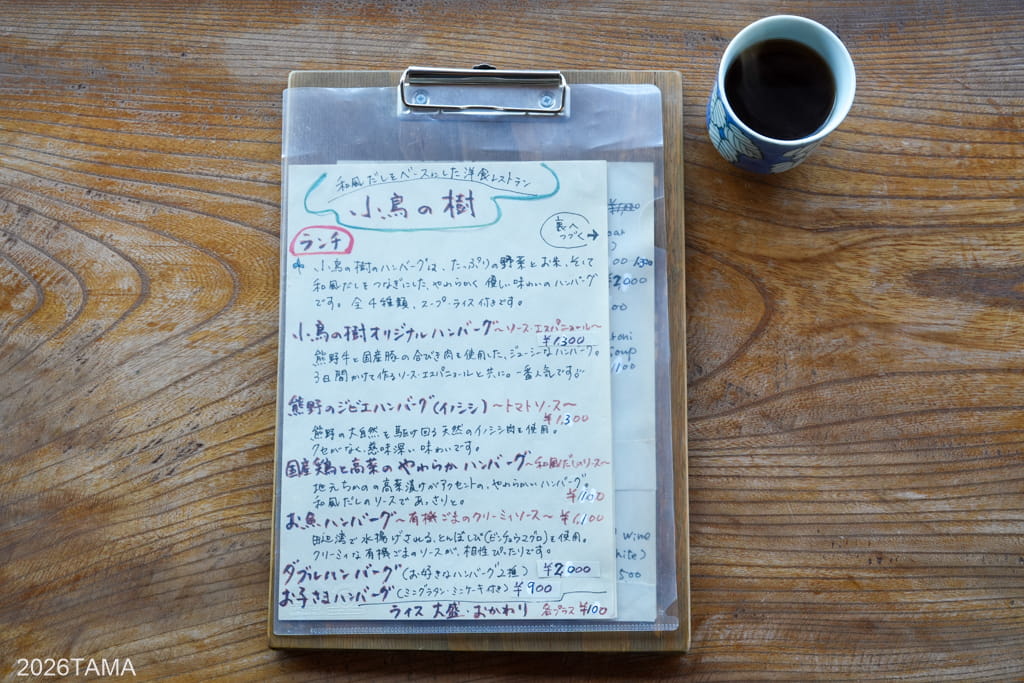 和風だしをベースにした洋食レストラン
小鳥の樹
裏へ
つづく→
ランチ
小鳥の樹のハンバーグは、たっぷりの野菜とお米、そして
和風だしをつなぎにした、やわらかく優しい味わいのハンバーグ
です。全4種類、スープ・ライス付きです。
小鳥の樹オリジナルハンバーグ〜ソース・エスパニョール〜
¥1,300
熊野牛と国産豚の合びき肉を使用した、ジューシーなハンバーグ。
3日間かけて作るソース・エスパニョールと共に。一番人気です。
熊野のジビエハンバーグ(イノシシ)〜トマトソース〜
¥1,300
熊野の大自然を駆け回る天然のイノシシ肉を使用。
クセがなく、慈味深い味わいです。
国産鶏と高菜のやわらかハンバーグ〜和風だしのソース〜
地元ちかのの高菜漬けがアクセントの、やわらかいハンバーグ。
和風だしのソースであっさりと。
¥1,100
お魚ハンバーグ〜有機ごまのクリーミィソース〜 ¥1,100
田辺湾で水揚げされる、とんぼしび(ビンチョウマグロ)を使用。
クリーミィな有機ごまのソースが、相性ぴったりです。
ダブルハンバーグ(お好きなハンバーグ2種) ¥2,000
お子さまハンバーグ(ミニグラタン・ミニケーキ付き) ¥900
ライス 大盛・おかわり 各プラス ¥100
1,300
¥2,000
00
roni
Soup
1100
wine
hite)
500
2026TAMA